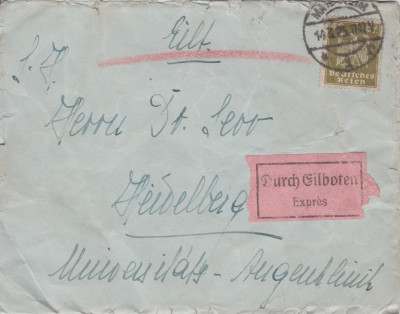 Eilt.
S. H.
Deutsches
Reich
Herrn Dr. Serr
Durch Eilboten
Exprès
Heidelberg
Universitäts-Augenklinik